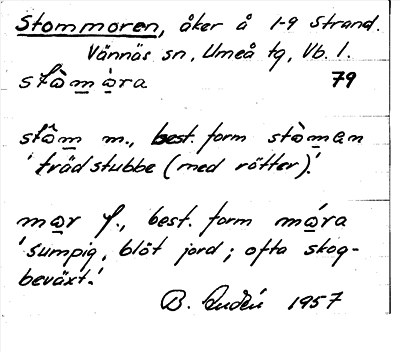 Stommoren, åker å 1-9 Strand.
Vännäs sn, Umeå tg, Vb. l.
stò̀m àra 79
stôm m., best. form stòmen
'trädstubbe (med rötter).'
mar f., best. form mára
'sumpig, blöt jord; ofta skog-
beväxt.'
B. 1957